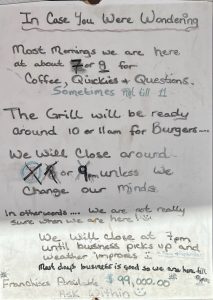 In Case You Were Wondering
Most Mornings we are here
at about 7 or 9 for
Coffee, Quickies & Questions.
Sometimes Not till 11
The Grill will be ready
around 10 or 11am for Burgers....
We Will Close around
or 9pm unless We
Change our Minds.
In otherwords.... We are not really
sure when we are here!
We Will Close at 7pm
until business picks up and
weather improves
Most days business is good so we are here till
Franchises Available $99,000.00
Ask Within